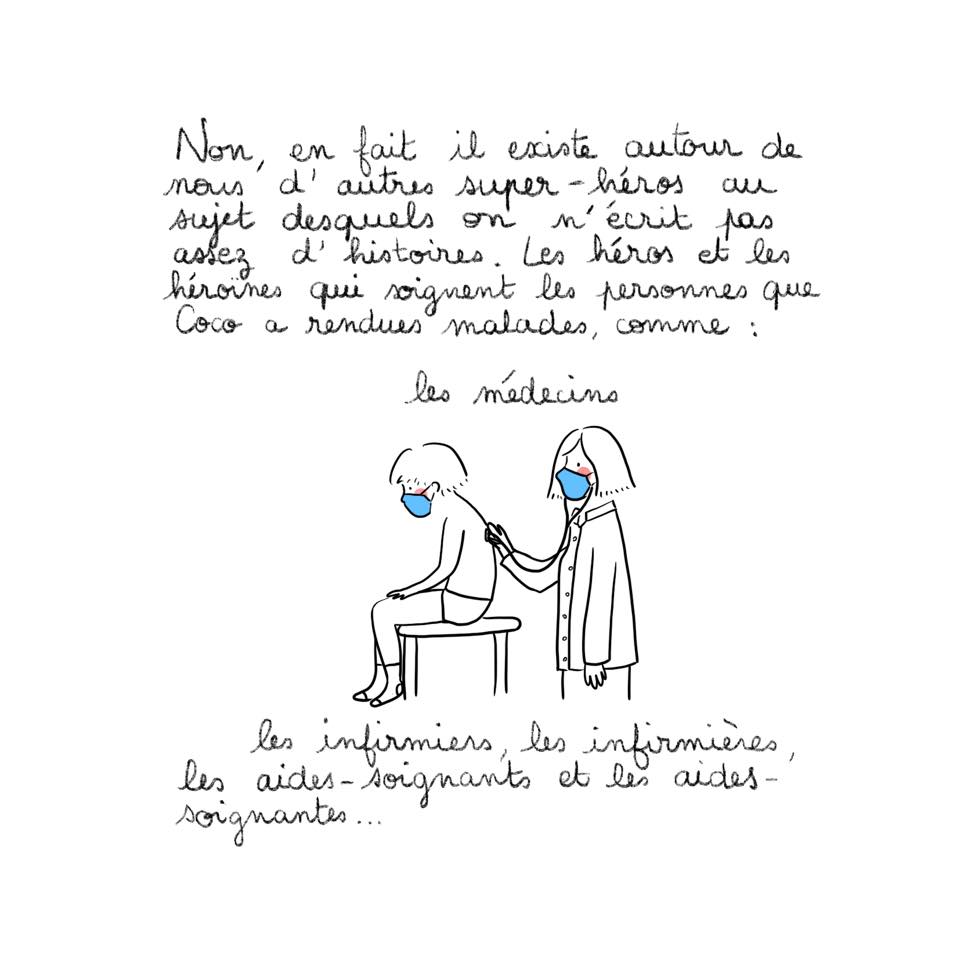 Non, en fait il existe autour de
nous d'autres super-héros au
sujet desquels on n'écrit pas
assez d'histoires. Les héros et les
héroïnes qui soignent les personnes que
Coco a rendues malades, comme :
les médecins
les infirmiers, les infirmières,
les aides-soignants et les aides-
soignantes...